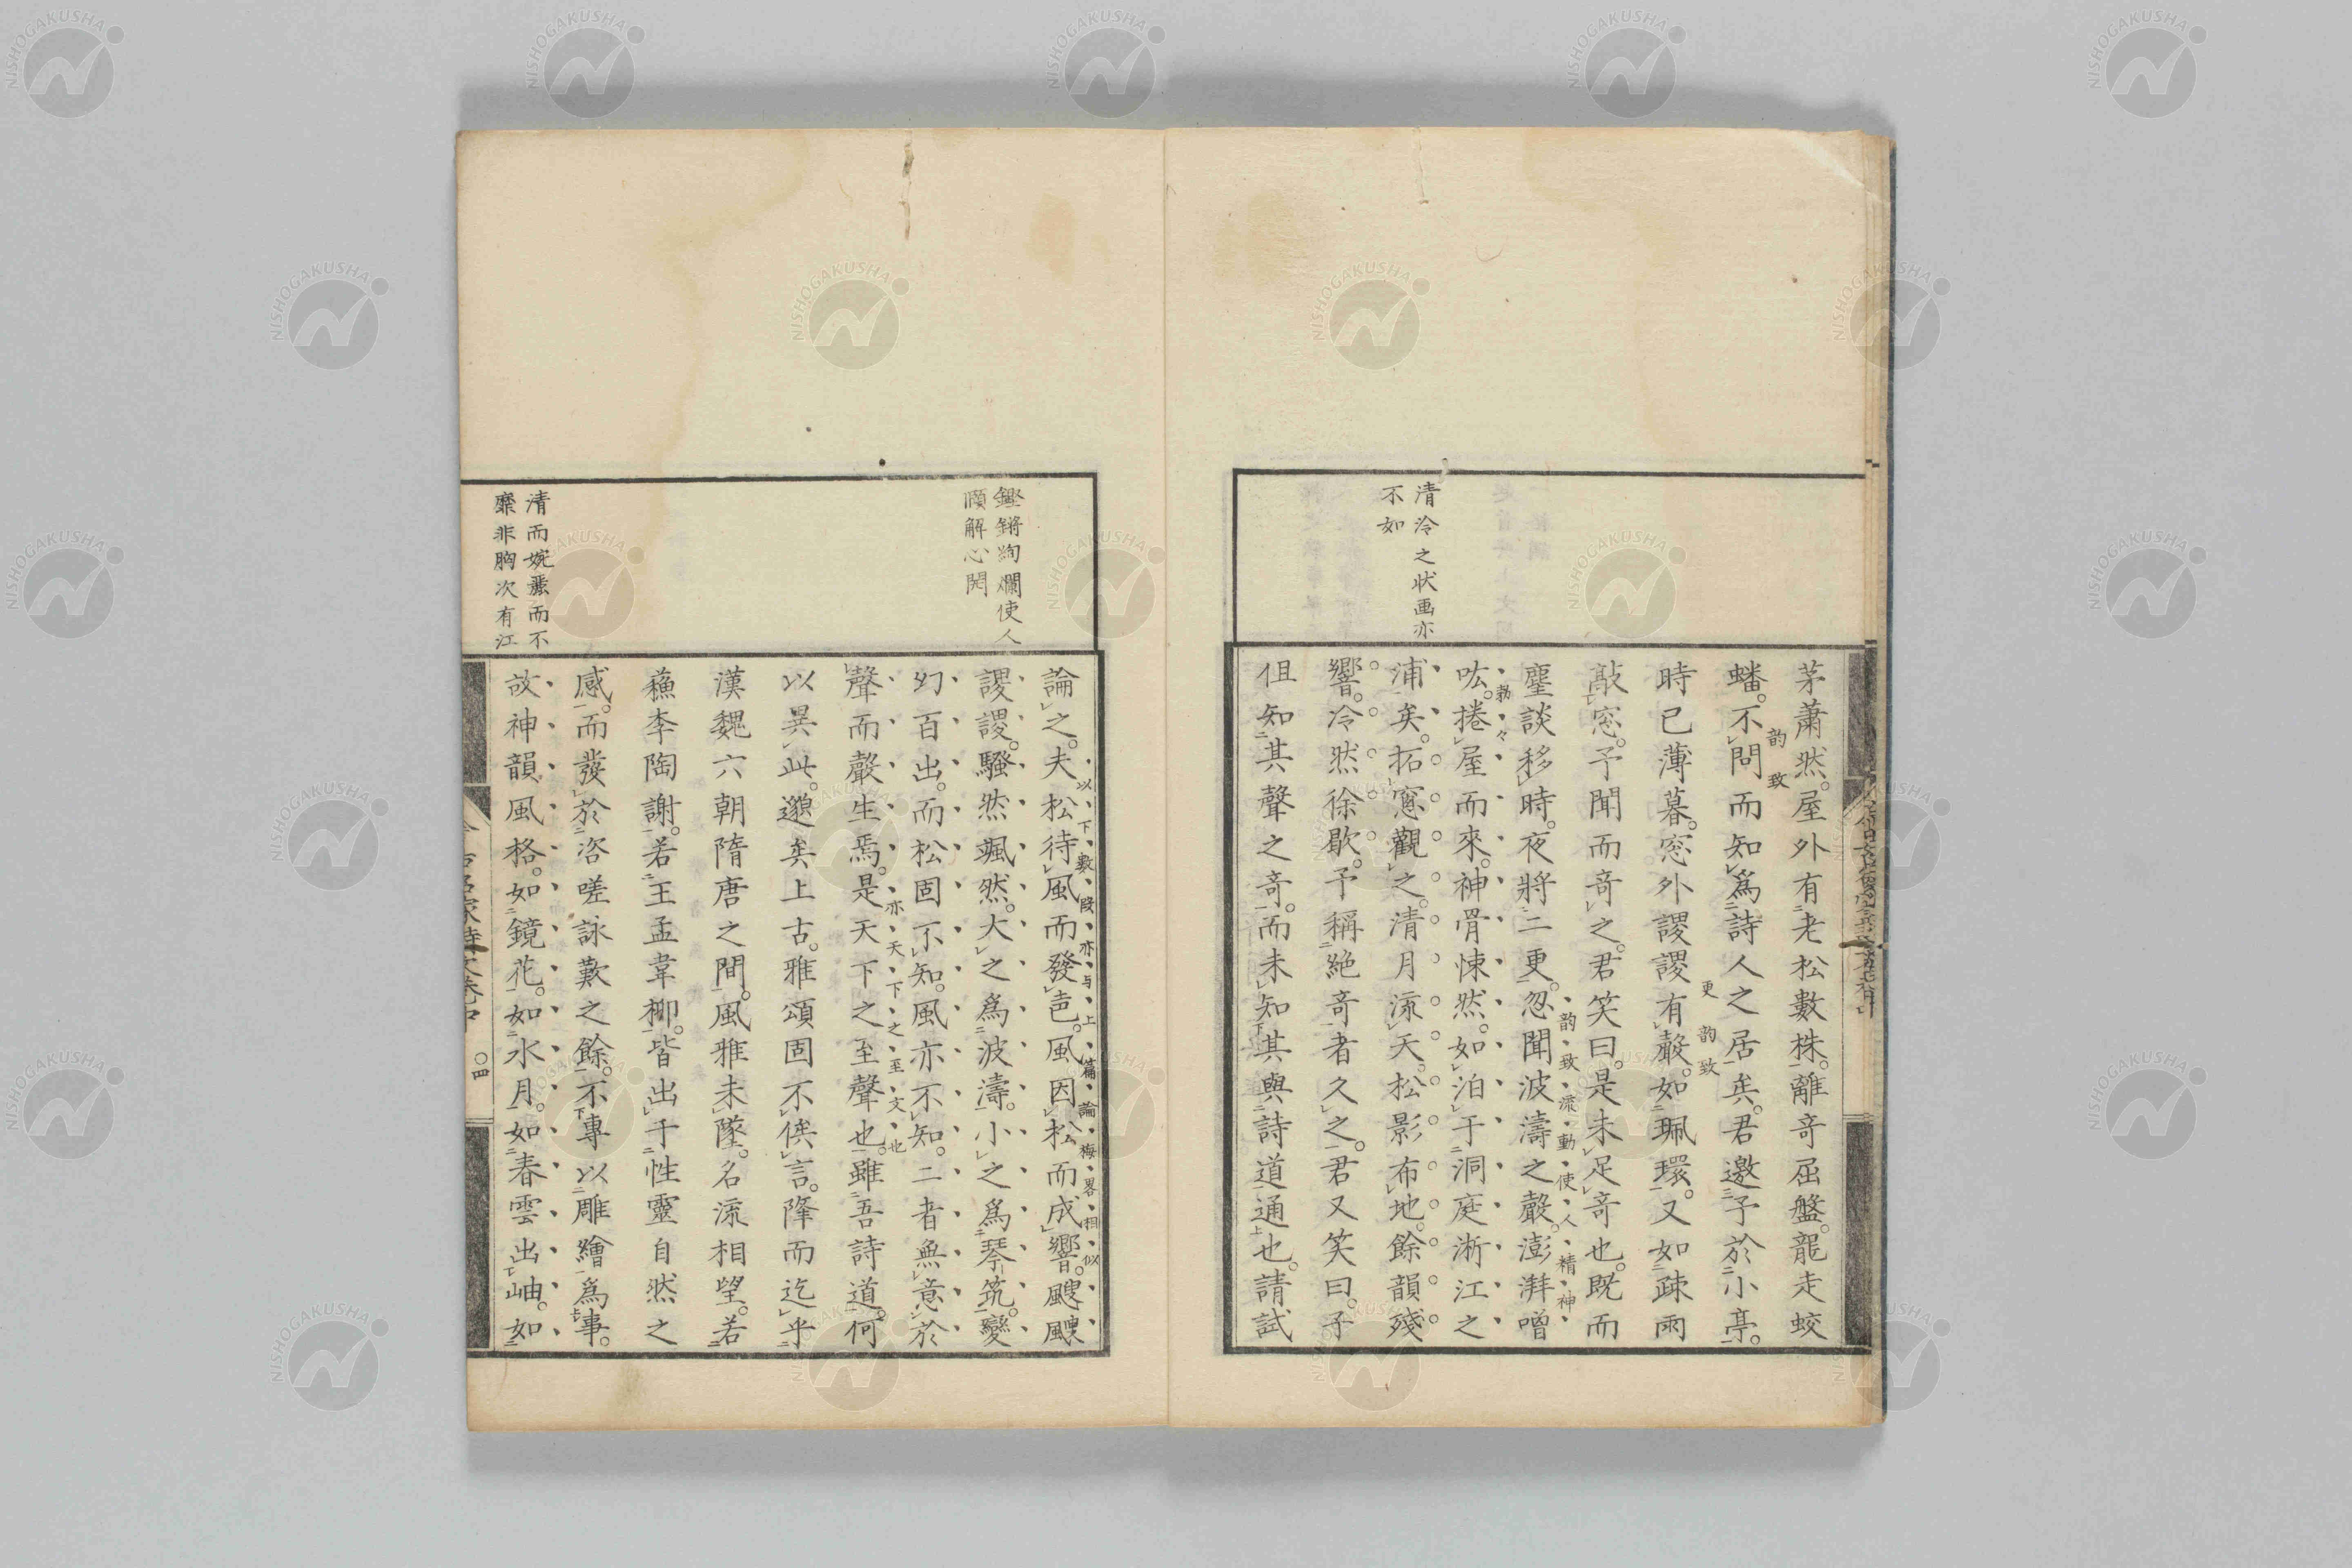 清冷之状画亦
不如
茅蕭然。屋外有老松數株。離奇屈盤。龍走蛟
蟠。不問而知爲詩人之居矣。君邀予於小亭。
韵致
時已薄暮。窓外謖謖有聲。如珮環。又如疎雨
更韵致
敲窓。予聞而奇之。君笑曰。是未足奇也。既而
麈談移時。夜將二更。忽聞波濤之聲。澎湃噌
韵致流動使人精神
吰。捲屋而來。神骨悚然。如泊于洞庭淅江之
勃々
浦矣。拓窓觀之。清月流天。松影布地。餘韻殘
響。冷然徐歇。予稱絶奇者久之。君又笑曰。子
但知其聲之奇。而未知其與詩道通也。請試
鏗鏘絢爛使人
頤解心開
清而婉麗而不
靡非胸次有江
論之。夫松待風而發声。風因松而成響。颼颼
以下數段亦与上篇論梅畧相似
謖謖。騷然颯然。大之爲波濤。小之爲琴筑。變
幻百出。而松固不知。風亦不知。二者無意於
聲而聲生焉。是天下之至聲也。雖吾詩道。何
亦天下之至文也
以異此。邈矣上古。雅頌固不俟言。降而迄乎
漢魏六朝隋唐之間。風雅未墜。名流相望。若
蘓李陶謝。若王孟韋柳。皆出于性靈自然之
感。而發於咨嗟詠歎之餘。不專以雕繪爲事。
故神韻風格。如鏡花。如水月。如春雲出岫。如
〇四
NISHOGAKUSHA